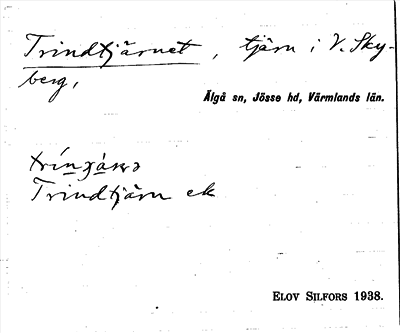 Trindtjärnet, tjärn i V. Sky-
berg,
Älgå sn, Jösse hd, Värmlands län.
Trindtjärn ek
ELOV SILFORS 1938.